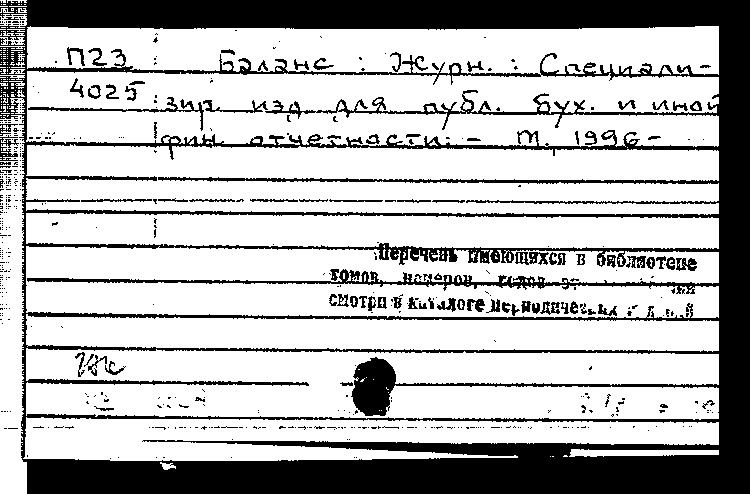 П23 Баланс : Журн. : Специали-
4025 зир. изд. для публ. бух. и иной
фин. отчетности. - М., 1996 -
Перечень имеющихся в библиотеке
томов, номеров, годов
смотри в каталоге периодических